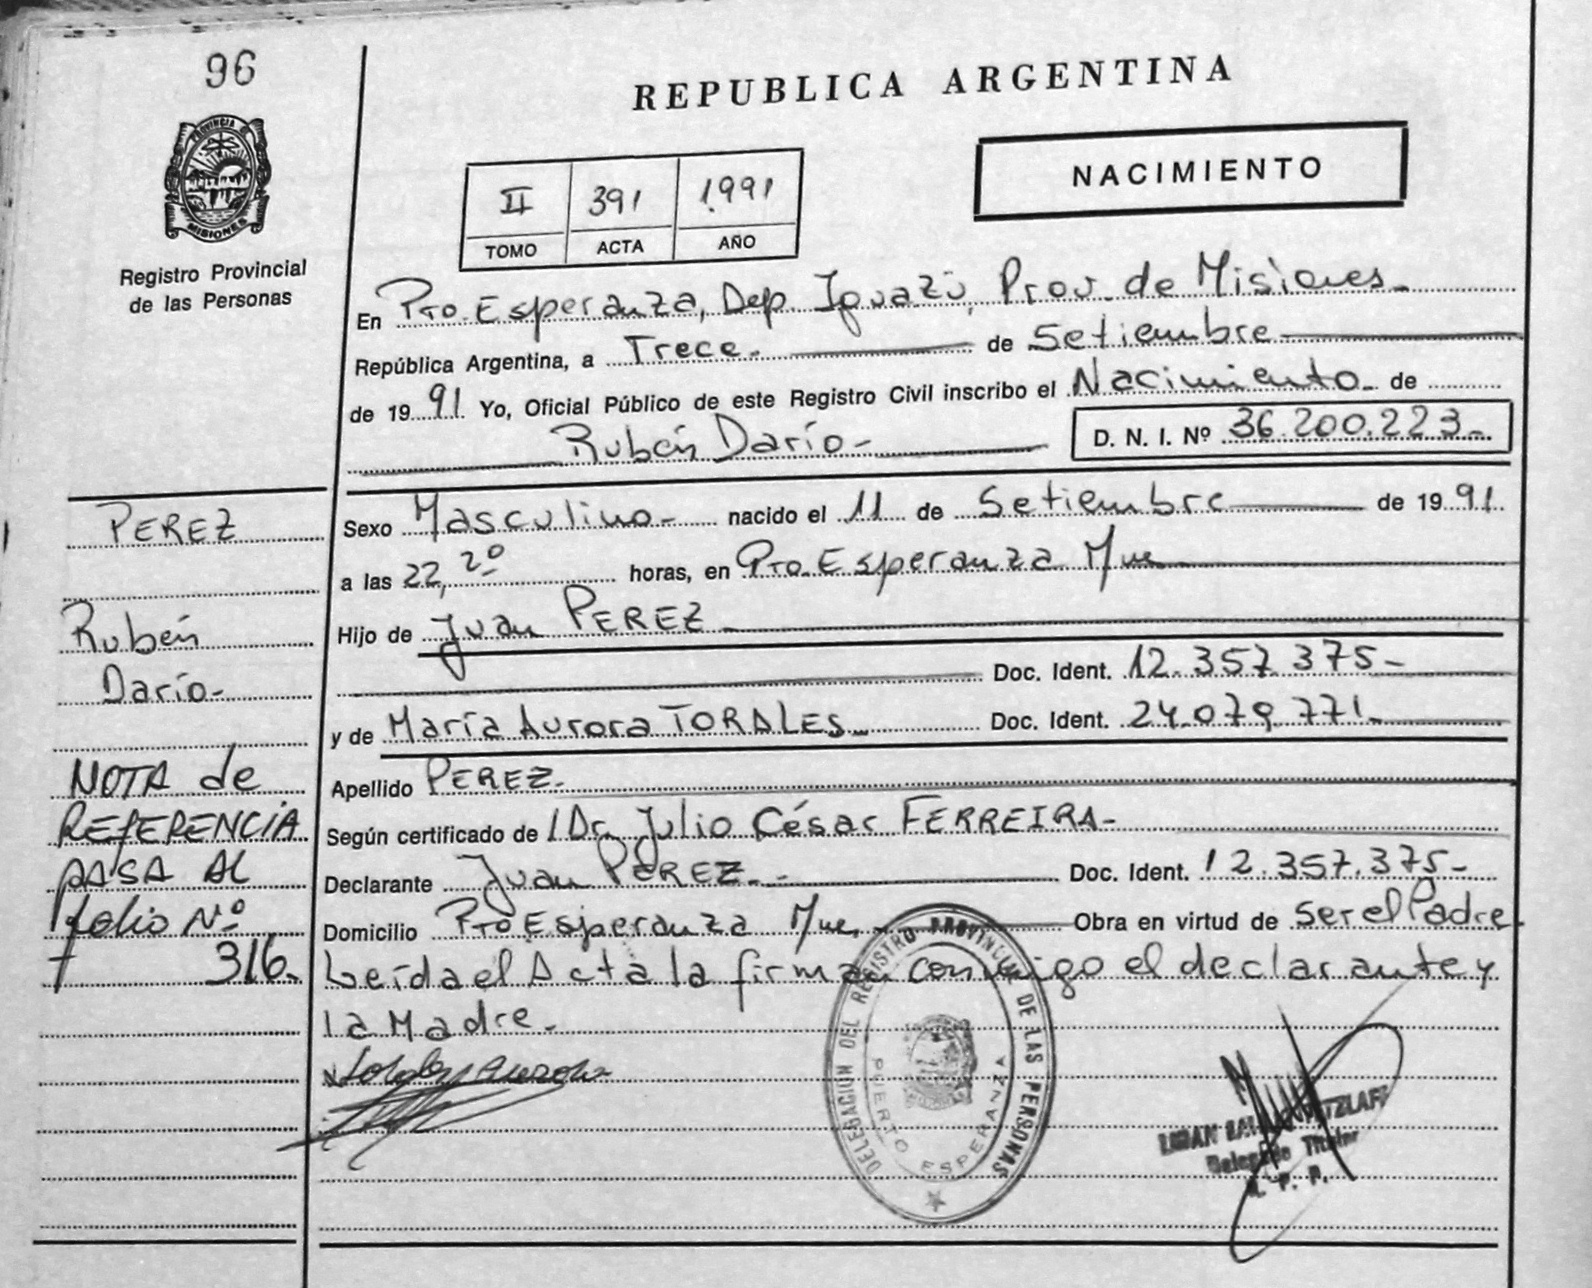 96
REPUBLICA ARGENTINA
PROVINCIA DE
MISIONES
Registro Provincial
de las Personas
II 391 1991
TOMO ACTA AÑO
NACIMIENTO
En Pto. Esperanza, Dep. Iguazú, Prov. de Misiones.-
República Argentina, a Trece. de Setiembre
de 19 91 Yo, Oficial Público de este Registro Civil inscribo el Nacimiento de
Rubén Darío-
D. N. I. Nº 36.200.223-
PEREZ
Rubén
Darío-
NOTA de
REFERENCIA
PASA AL
folio Nº
316.
Sexo Masculino- nacido el 11 de Setiembre de 19 91.
a las 22,20 horas, en Pto. Esperanza Mnes
Hijo de Juan PEREZ
Doc. Ident. 12.357.375-
y de María Aurora TORALES Doc. Ident. 24.079.771-
Apellido PEREZ.
Según certificado de l Dr. Julio César FERREIRA-
Declarante Juan PEREZ.- Doc. Ident. 12.357.375-
Domicilio Pto Esperanza Mnes. Obra en virtud de Ser el Padre
Leída el Acta la firman conmigo el declarante y
la Madre.
Aurora
DELEGACION DEL REGISTRO PROVINCIAL DE LAS PERSONAS
PUERTO ESPERANZA
Delegado Titular
R. P. P.